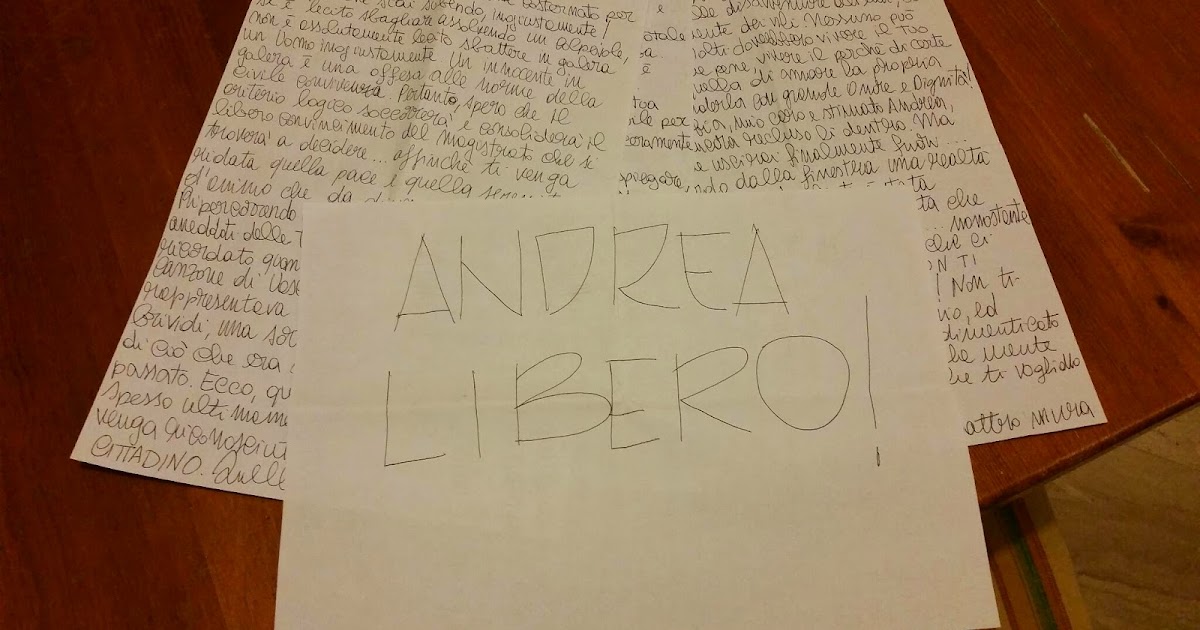 costernato per
stai subendo, ingiustamente!
se è lecito sbagliare assolvendo un colpevole,
non è assolutamente lecito sbattere in galera
un Uomo ingiustamente. Un innocente in
galera è una offesa alle norme della
civile convivenza. Pertanto, spero che il
criterio logico soccorrerà e consoliderà il
libero convincimento del magistrato che si
troverà a decidere... affinché ti venga
ridata quella pace e quella
d'animo che da
Ripercorrendo
aneddoti delle
ricordato quan
canzone di Vas
rappresentava
Brividi, una sor
di ciò che era
passato. Ecco, qu
spesso ultimame
venga riconosciut
CITTADINO. Quelle
è
otale
sa.
è
tua
ile per
eramente
spiegare,
ente dei vili. Nessuno può
olti dovrebbero vivere il Tuo
e pene, vivere il perché di certe
uella di amare la propria
ndola con grande Onore e Dignità!
mio caro e stimato Andrea,
recluso lì dentro. Ma
e uscirai finalmente fuori...
ndo dalla finestra una realtà
ta che
... nonostante
che ci
ON TI
! Non ti-
io, ed
dimenticato
la mente
he ti vogliono
ANDREA
LIBERO!